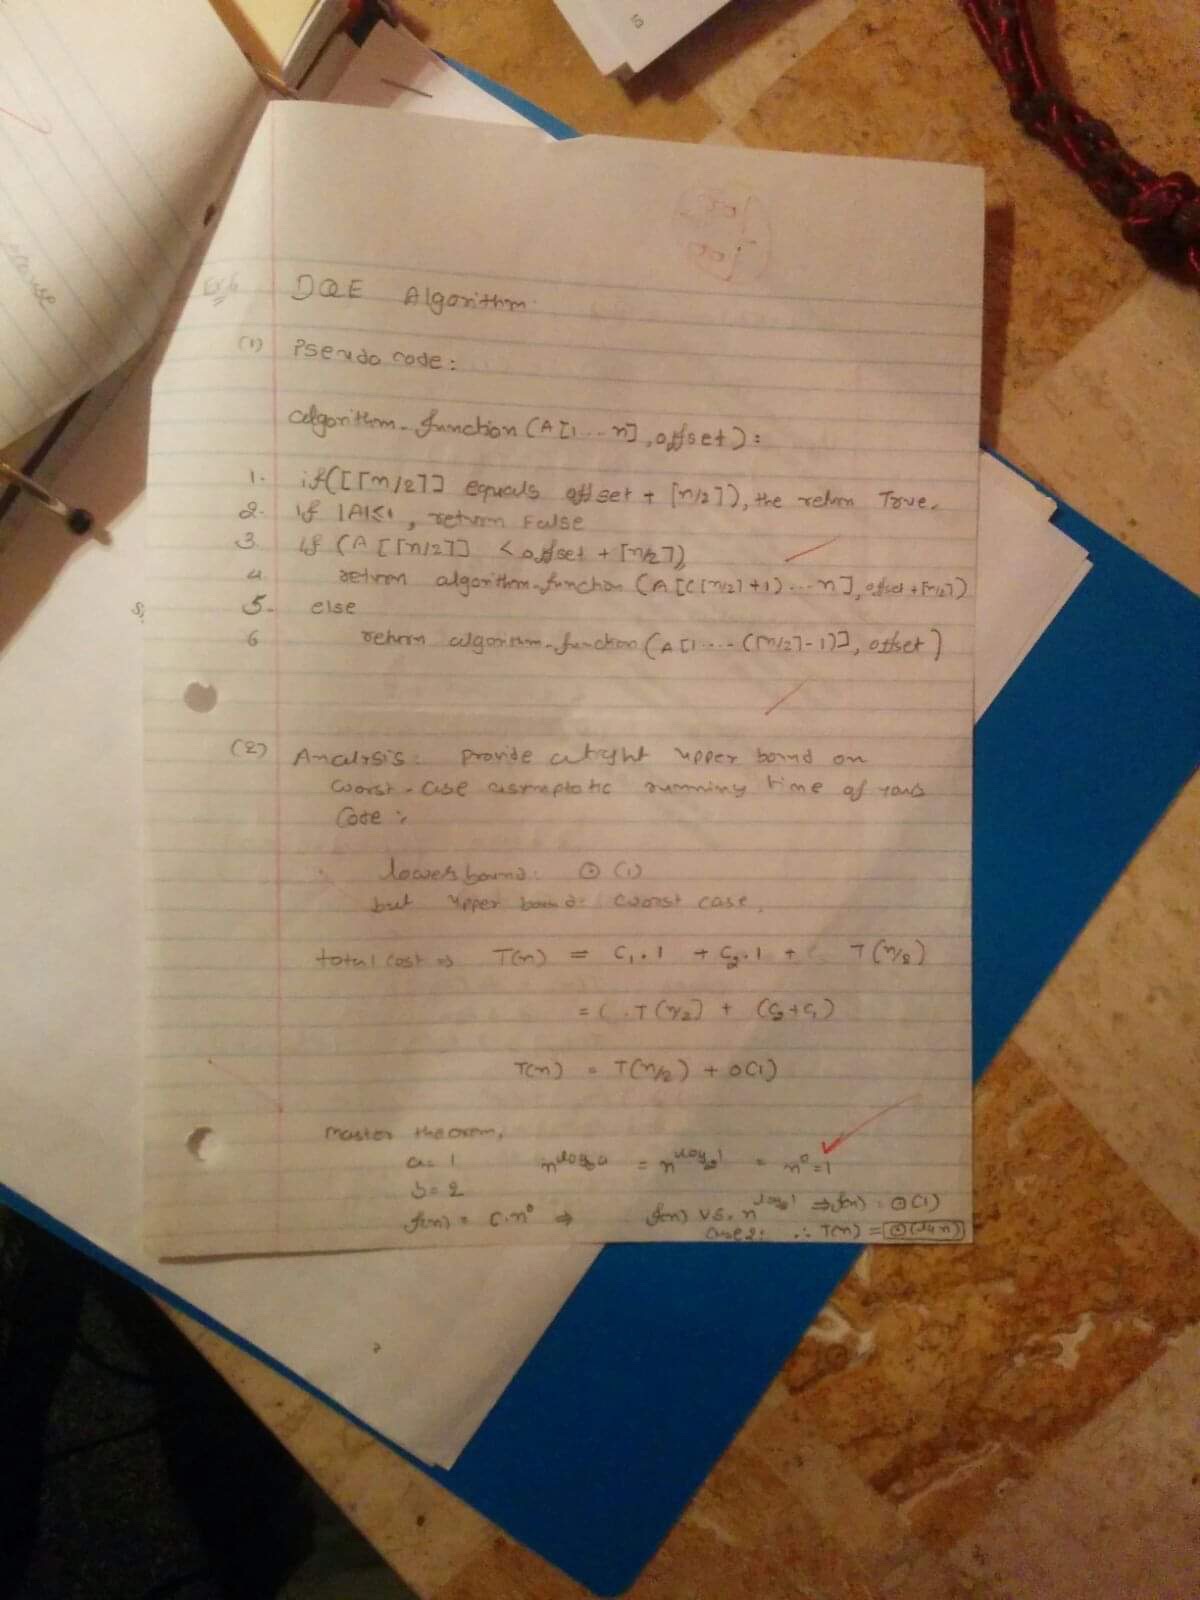 DQE Algorithm.
(1) Pseudo code:
algorithm-function (A[1...n], offset):
1. if([⌈n/2⌉] equals offset + ⌈n/2⌉), the return True.
2. if |A|≤1, return False
3. if (A[⌈n/2⌉] < offset + ⌈n/2⌉)
4. return algorithm-function (A[(⌈n/2⌉+1)...n], offset+⌈n/2⌉)
5. else
6 return algorithm-function (A[1...(⌈n/2⌉-1)], offset)
(2) Analysis: provide a tight upper bound on
worst-case asmeptotic running time of your
Code:
lower bound: Θ(1)
but upper bound: worst case,
total cost ⇒ T(n) = C₁.1 + C₂.1 + T(n/2)
= T(n/2) + (C₂+C₁)
T(n) = T(n/2) + O(1)
Master theorem,
a=1 n^log₂a = n^log₂1 = n⁰=1
b=2
f(n) = C.n⁰ ⇒ f(n) vs. n^log₂1 ⇒ f(n) = Θ(1)
Case 2: ∴ T(n) = Θ(lg n)